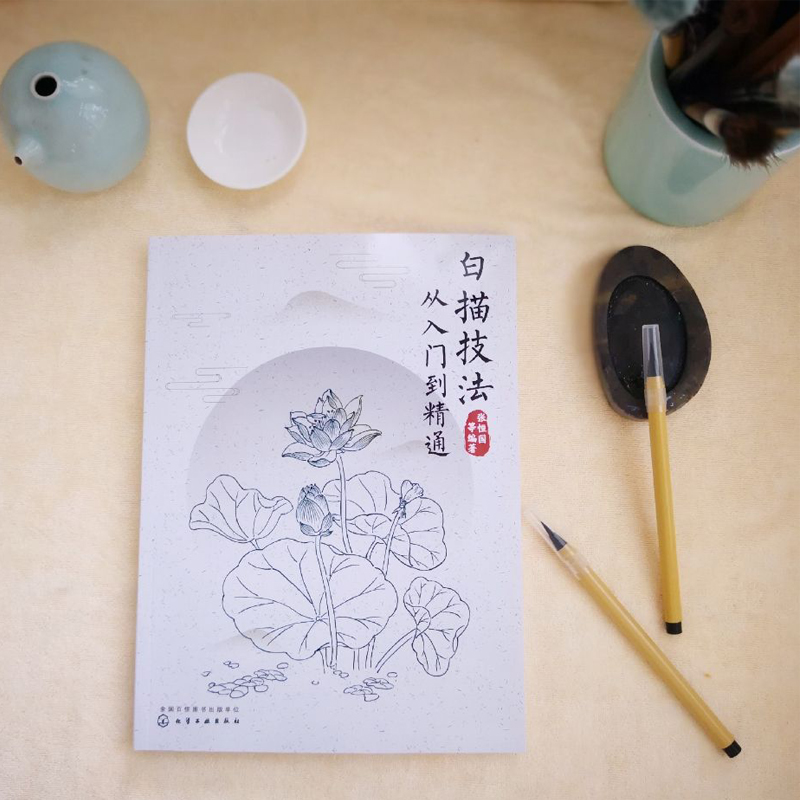 白描技法
从入门到精通
张恒国
等编著
全国百佳图书出版单位
化学工业出版社